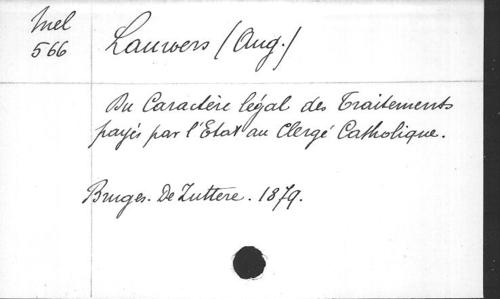 Mel
566
Lauwers (Aug.)
Du Caractère légal des Traitements
payés par l'Etat au Clergé Catholique.
Bruges. De Zuttere. 1879.